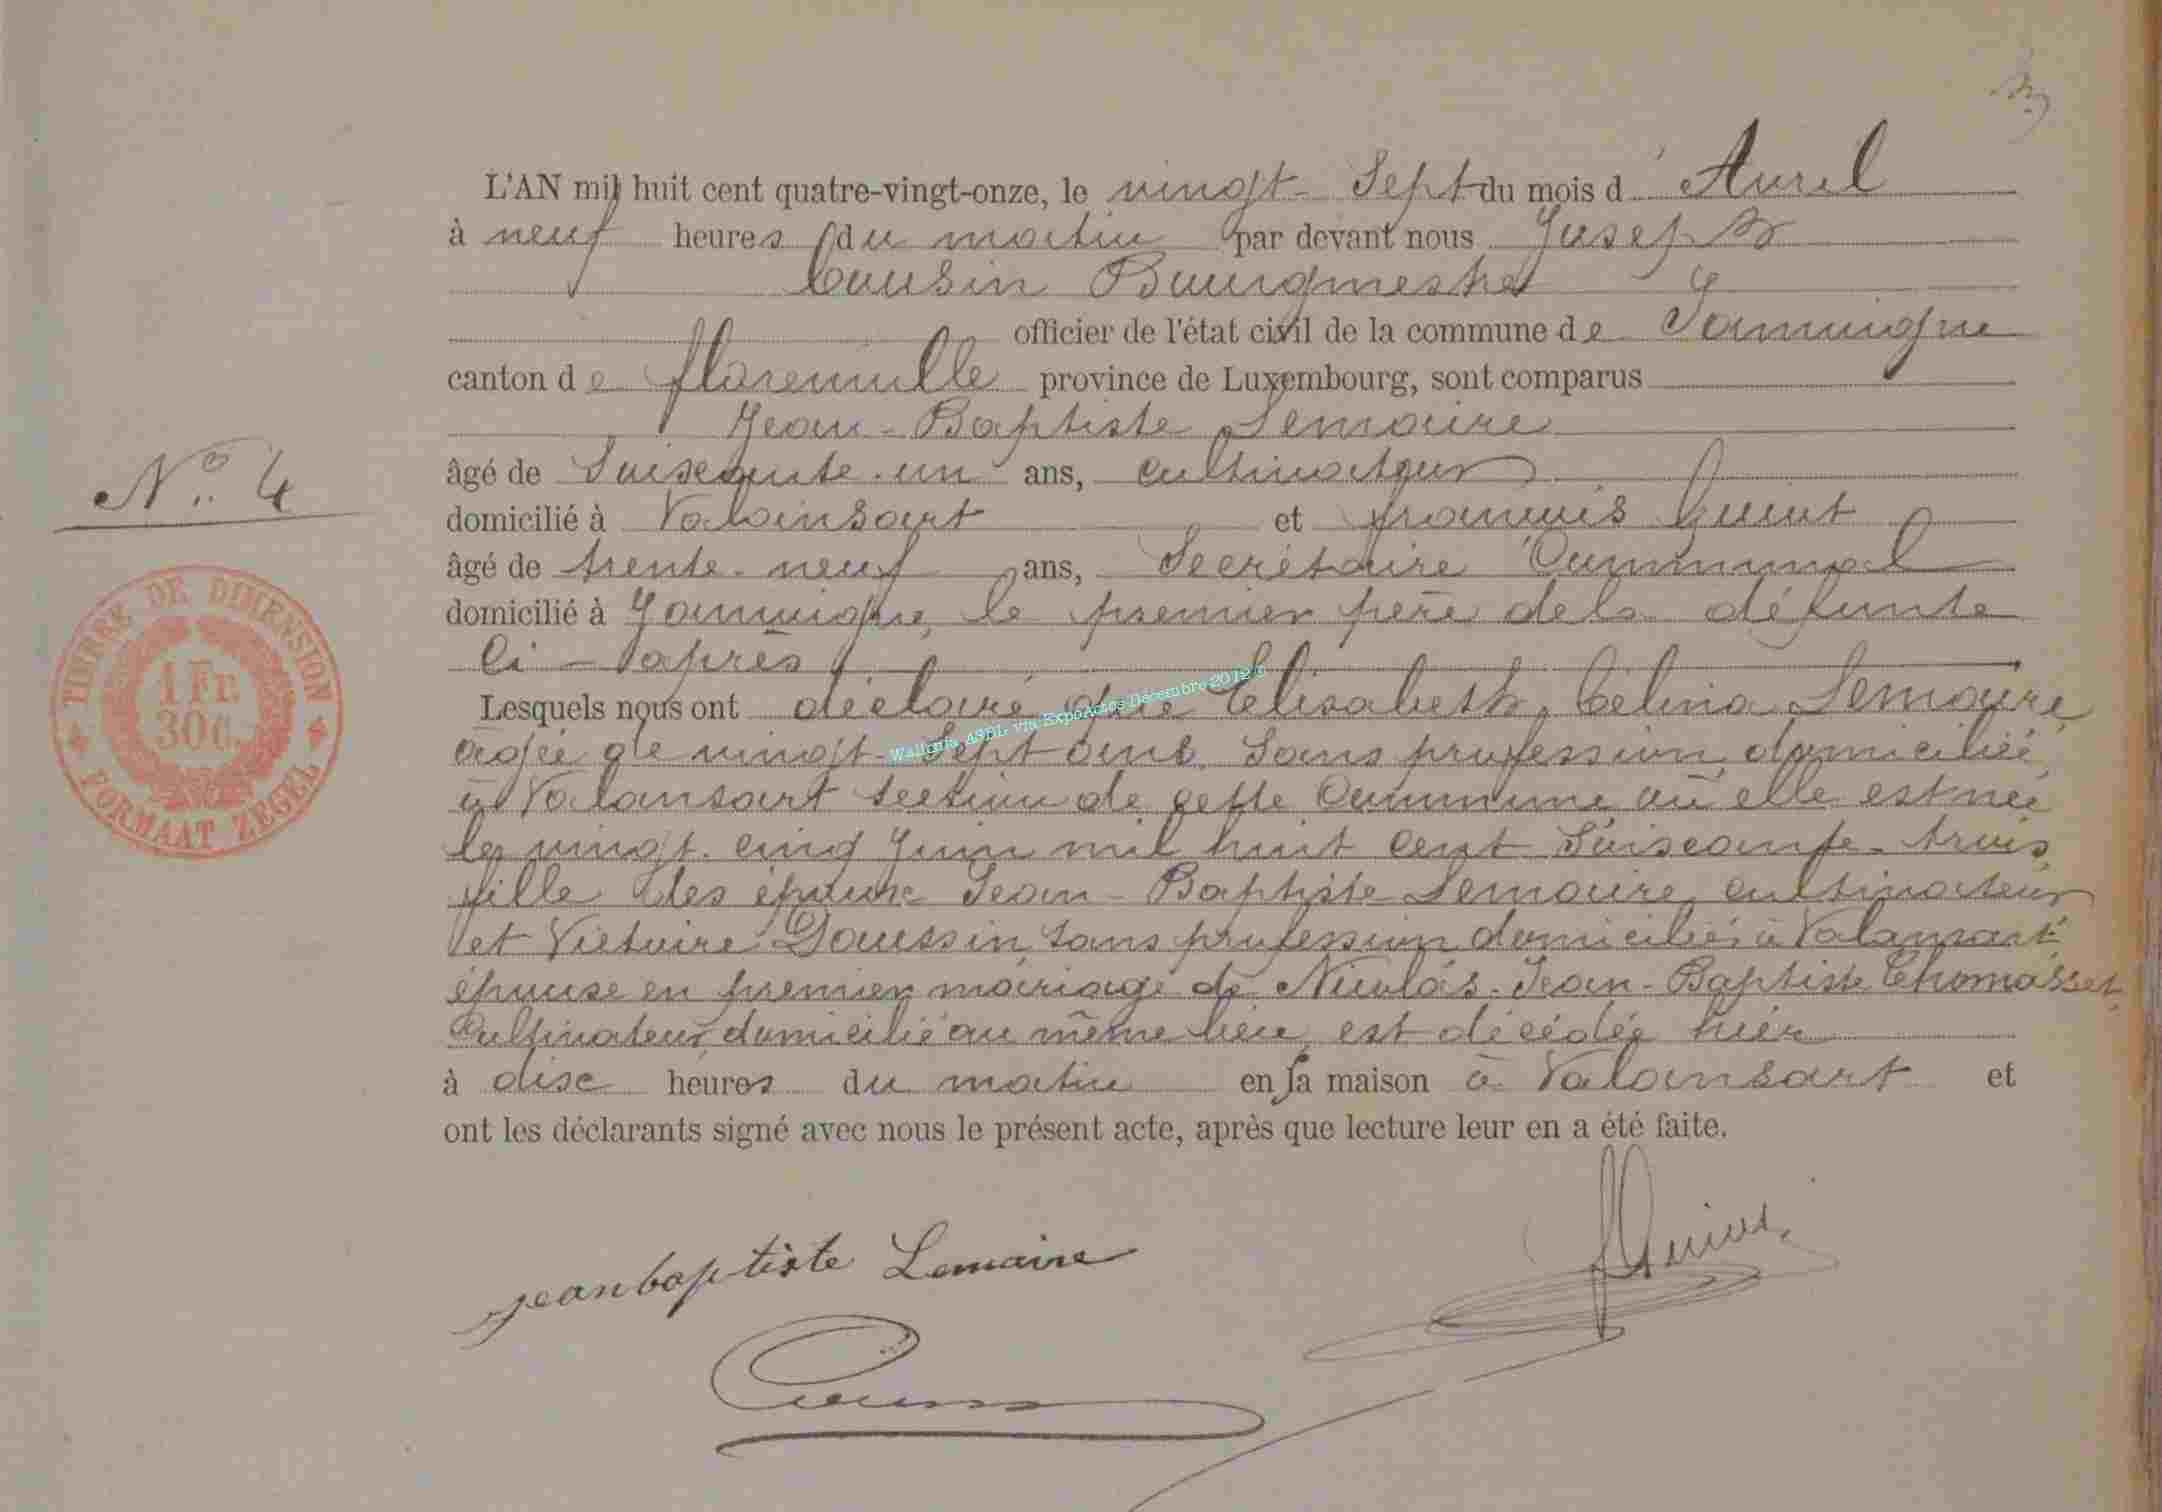 L'AN mil huit cent quatre-vingt-onze, le vingt-Sept du mois d'Avril
à neuf heures du matin par devant nous Joseph
Cousin Bourgmestre
officier de l'état civil de la commune de Jamoigne
canton de florenville province de Luxembourg, sont comparus
Jean-Baptiste Lemaire
N° 4
âgé de Soixante-un ans, cultivateur
domicilié à Valainsart et françois Guiot
âgé de trente-neuf ans, Secrétaire Communal
domicilié à Jamoigne, le premier père de la défunte
Ci-après
TIMBRE DE DIMENSION
1 Fr.
30 C.
FORMAAT ZEGEL
Lesquels nous ont déclaré que Elisabeth, Célina Lemaire,
âgée de vingt-Sept ans, Sans profession, domiciliée
à Valansart section de cette Commune où elle est née
le vingt-cinq Juin mil huit cent Soixante-trois,
fille des époux Jean-Baptiste Lemaire, cultivateur
et Victoire Goussin, sans profession domiciliés à Valansart
épouse en premier mariage de Nicolas-Jean-Baptiste Thomasset,
Cultivateur, domicilié au même lieu, est décédée hier
à dix heures du matin en sa maison à Valansart et
ont les déclarants signé avec nous le présent acte, après que lecture leur en a été faite.
Wallonia, ASBL via ExpoActes Décembre 2012 ©
jeanbaptiste Lemaire